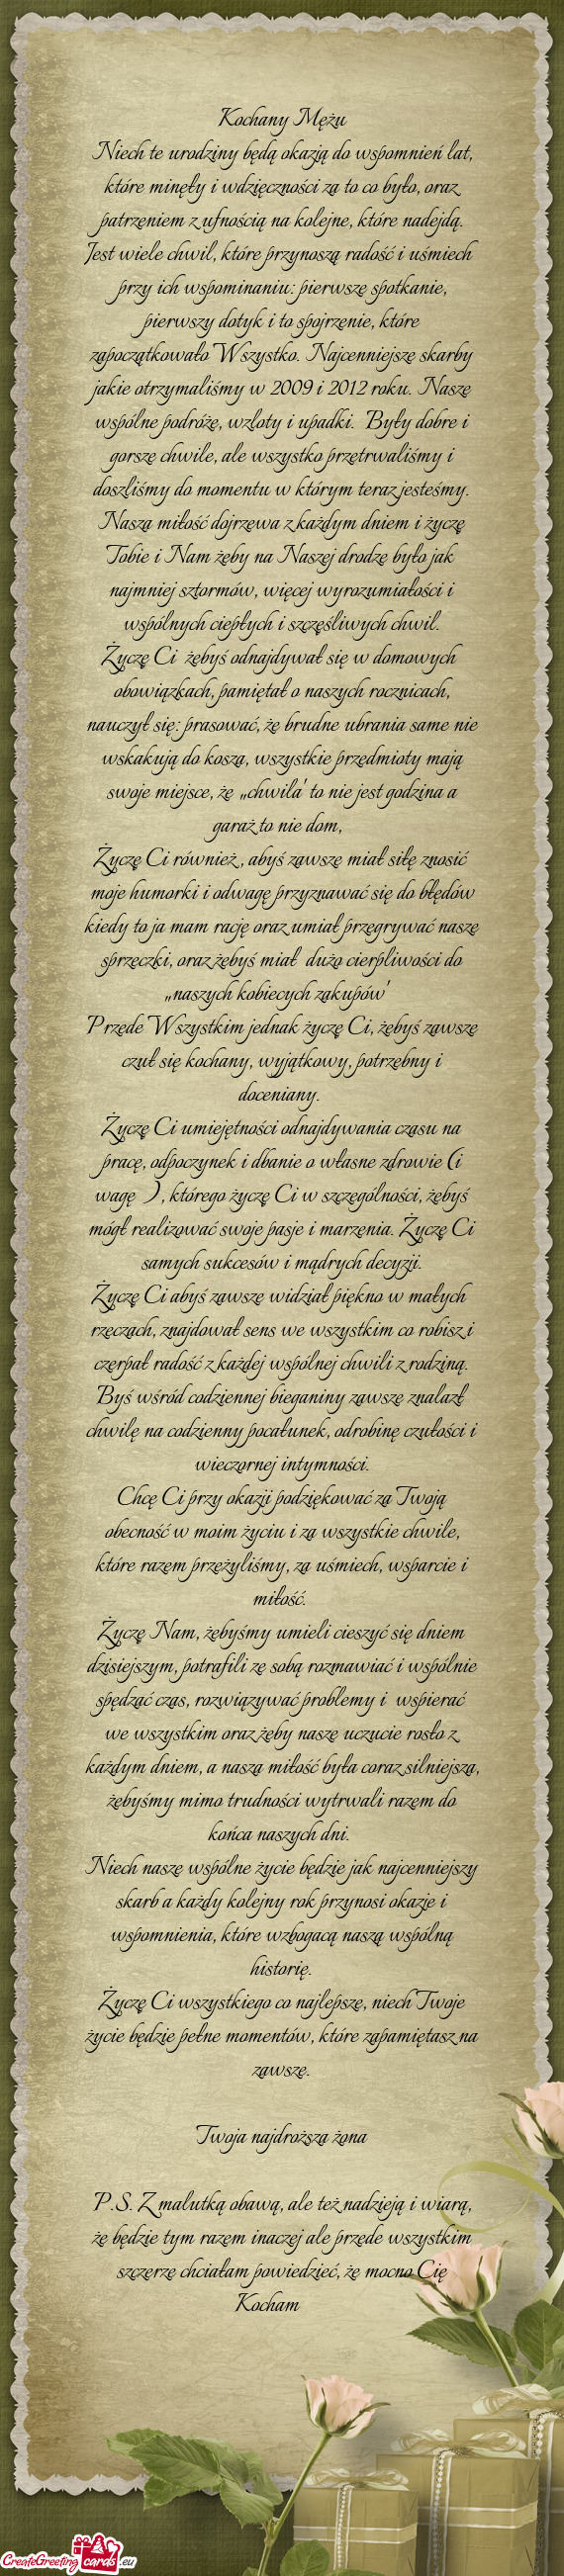 Kochany Mężu
Niech te urodziny będą okazją do wspomnień lat,
które minęły i wdzięczności za to co było, oraz
patrzeniem z ufnością na kolejne, które nadejdą.
Jest wiele chwil, które przynoszą radość i uśmiech
przy ich wspominaniu: pierwsze spotkanie,
pierwszy dotyk i to spojrzenie, które
zapoczątkowało Wszystko. Najcenniejsze skarby
jakie otrzymaliśmy w 2009 i 2012 roku. Nasze
wspólne podróże, wzloty i upadki. Były dobre i
gorsze chwile, ale wszystko przetrwaliśmy i
doszliśmy do momentu w którym teraz jesteśmy.
Nasza miłość dojrzewa z każdym dniem i życzę
Tobie i Nam żeby na Naszej drodze było jak
najmniej sztormów, więcej wyrozumiałości i
wspólnych ciepłych i szczęśliwych chwil.
Życzę Ci żebyś odnajdywał się w domowych
obowiązkach, pamiętał o naszych rocznicach,
nauczył się: prasować, że brudne ubrania same nie
wskakują do kosza, wszystkie przedmioty mają
swoje miejsce, że „chwila' to nie jest godzina a
garaż to nie dom,
Życzę Ci również , abyś zawsze miał siłę znosić
moje humorki i odwagę przyznawać się do błędów
kiedy to ja mam rację oraz umiał przegrywać nasze
sprzeczki, oraz żebyś miał dużo cierpliwości do
„naszych kobiecych zakupów'
Przede Wszystkim jednak życzę Ci, żebyś zawsze
czuł się kochany, wyjątkowy, potrzebny i
doceniany.
Życzę Ci umiejętności odnajdywania czasu na
pracę, odpoczynek i dbanie o własne zdrowie (i
wagę ) , którego życzę Ci w szczególności, żebyś
mógł realizować swoje pasje i marzenia. Życzę Ci
samych sukcesów i mądrych decyzji.
Życzę Ci abyś zawsze widział piękno w małych
rzeczach, znajdował sens we wszystkim co robisz i
czerpał radość z każdej wspólnej chwili z rodziną.
Byś wśród codziennej bieganiny zawsze znalazł
chwilę na codzienny pocałunek, odrobinę czułości i
wieczornej intymności.
Chcę Ci przy okazji podziękować za Twoją
obecność w moim życiu i za wszystkie chwile,
które razem przeżyliśmy, za uśmiech, wsparcie i
miłość.
Życzę Nam, żebyśmy umieli cieszyć się dniem
dzisiejszym, potrafili ze sobą rozmawiać i wspólnie
spędzać czas, rozwiązywać problemy i wspierać
we wszystkim oraz żeby nasze uczucie rosło z
każdym dniem, a nasza miłość była coraz silniejsza,
żebyśmy mimo trudności wytrwali razem do
końca naszych dni.
Niech nasze wspólne życie będzie jak najcenniejszy
skarb a każdy kolejny rok przynosi okazje i
wspomnienia, które wzbogacą naszą wspólną
historię.
Życzę Ci wszystkiego co najlepsze, niech Twoje
życie będzie pełne momentów, które zapamiętasz na
zawsze.
Twoja najdroższa żona
P.S. Z malutką obawą, ale też nadzieją i wiarą,
że będzie tym razem inaczej ale przede wszystkim
szczerze chciałam powiedzieć, że mocno Cię
Kocham
CreateGreetingcards.eu